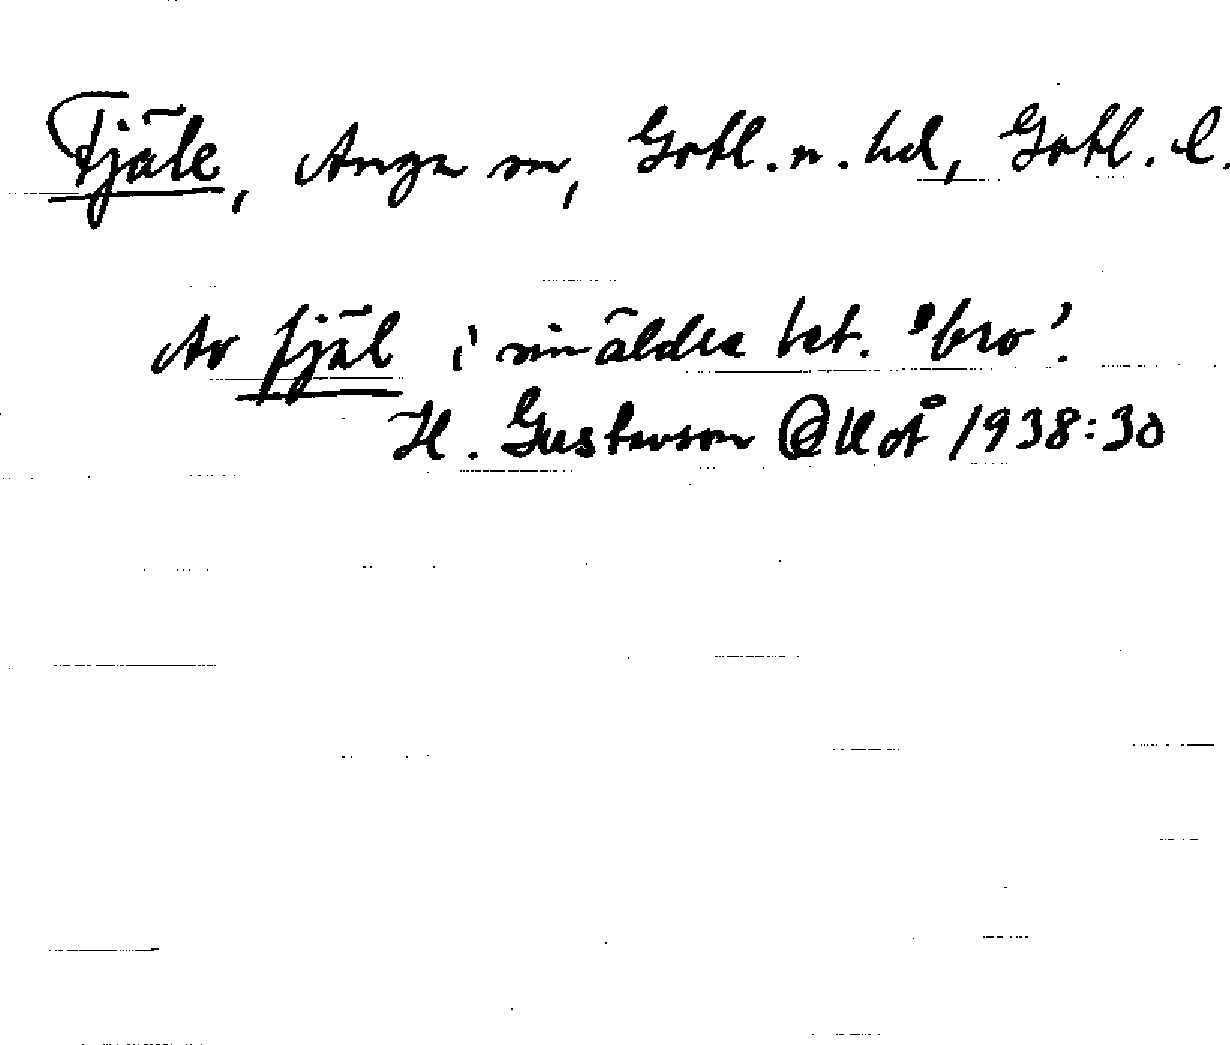 Fjäle, Anga sn, Gotl. n. hd, Gotl. l.
Av fjäl i sin äldre bet. 'bro'.
H. Gustavson OUOÅ 1938:30